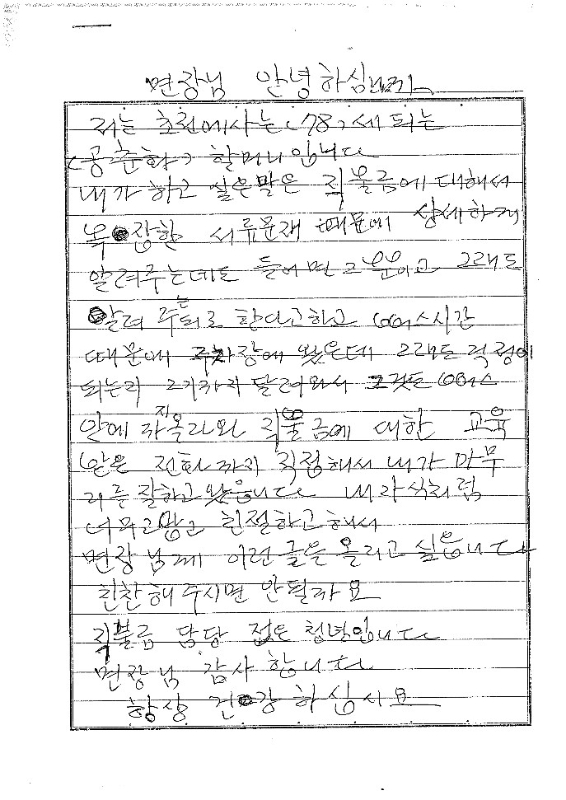 면장님 안녕하심니까
저는 초전에사는 (78)세 되는
(공춘화) 할머니 입니다
내가 하고 싶은말은 직불금에 대해서
복잡한 서류문재 때문에 상세하게
알려주는데도 들어면 그뿐이고 그래도
알려 주는 되로 한다고하고 버스시간
때문에 주차장에 왔은데 그래도 걱정이
되는지 거기까지 달려와서 그것도 버스
앞에 자지 올라와 직불금에 대한 교육
받은 전화까지 직접해서 내가 마무
리를 잘하고 왔읍니다 내자식처럼
너무고맙고 친절하고해서
면장님께 이런 글은 올리고 싶읍니다
친찬해 주시면 안될까요
직불금 담당 접은 청년입니다
면장님 감사 합니다
항상 건강 하십시요